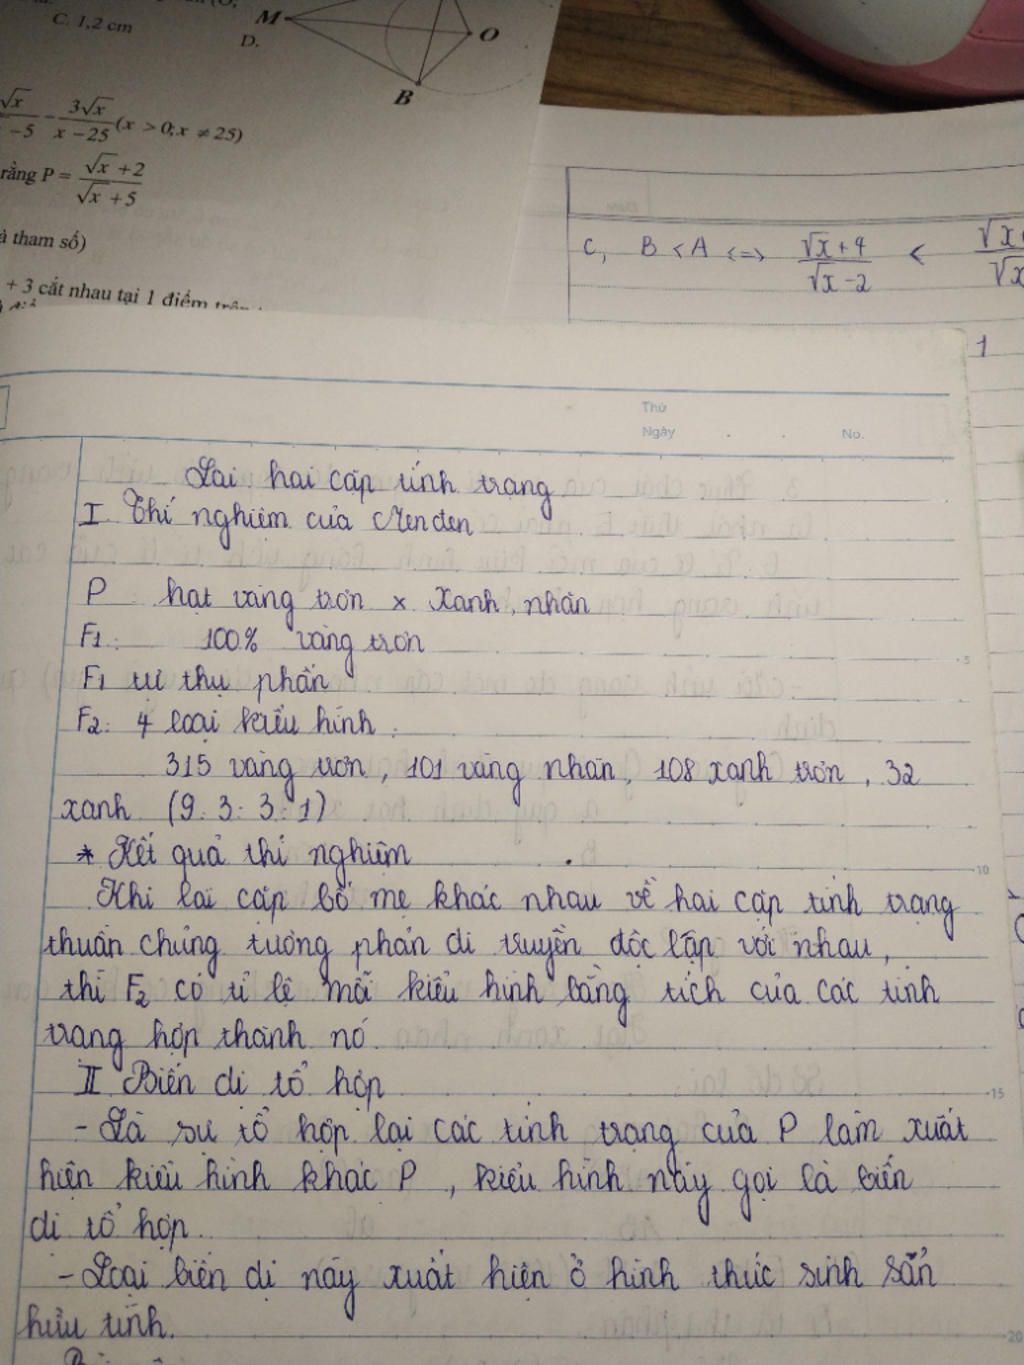 C. 1,2 cm
D.
M
O
B
√x / -5 - 3√x / x - 25 (x > 0; x ≠ 25)
rằng P = √x + 2 / √x + 5
à tham số)
+ 3 cắt nhau tại 1 điểm
c, B < A <=> √x + 4 / √x - 2 <
1
Thứ
Ngày No.
Lai hai cặp tính trạng
I. Thí nghiệm của Menđen
P hạt vàng trơn × Xanh, nhăn
F1: 100% vàng trơn
F1 tự thụ phấn
F2: 4 loại kiểu hình:
315 vàng trơn, 101 vàng nhăn, 108 xanh trơn, 32
xanh (9:3:3:1)
* Kết quả thí nghiệm
Khi lai cặp bố mẹ khác nhau về hai cặp tính trạng
thuần chủng tương phản di truyền độc lập với nhau,
thì F2 có tỉ lệ mỗi kiểu hình bằng tích của các tính
trạng hợp thành nó
II Biến dị tổ hợp
- Là sự tổ hợp lại các tính trạng của P làm xuất
hiện kiểu hình khác P, kiểu hình này gọi là biến
dị tổ hợp.
- Loại biến dị này xuất hiện ở hình thức sinh sản
hữu tính.
5
10
15
20